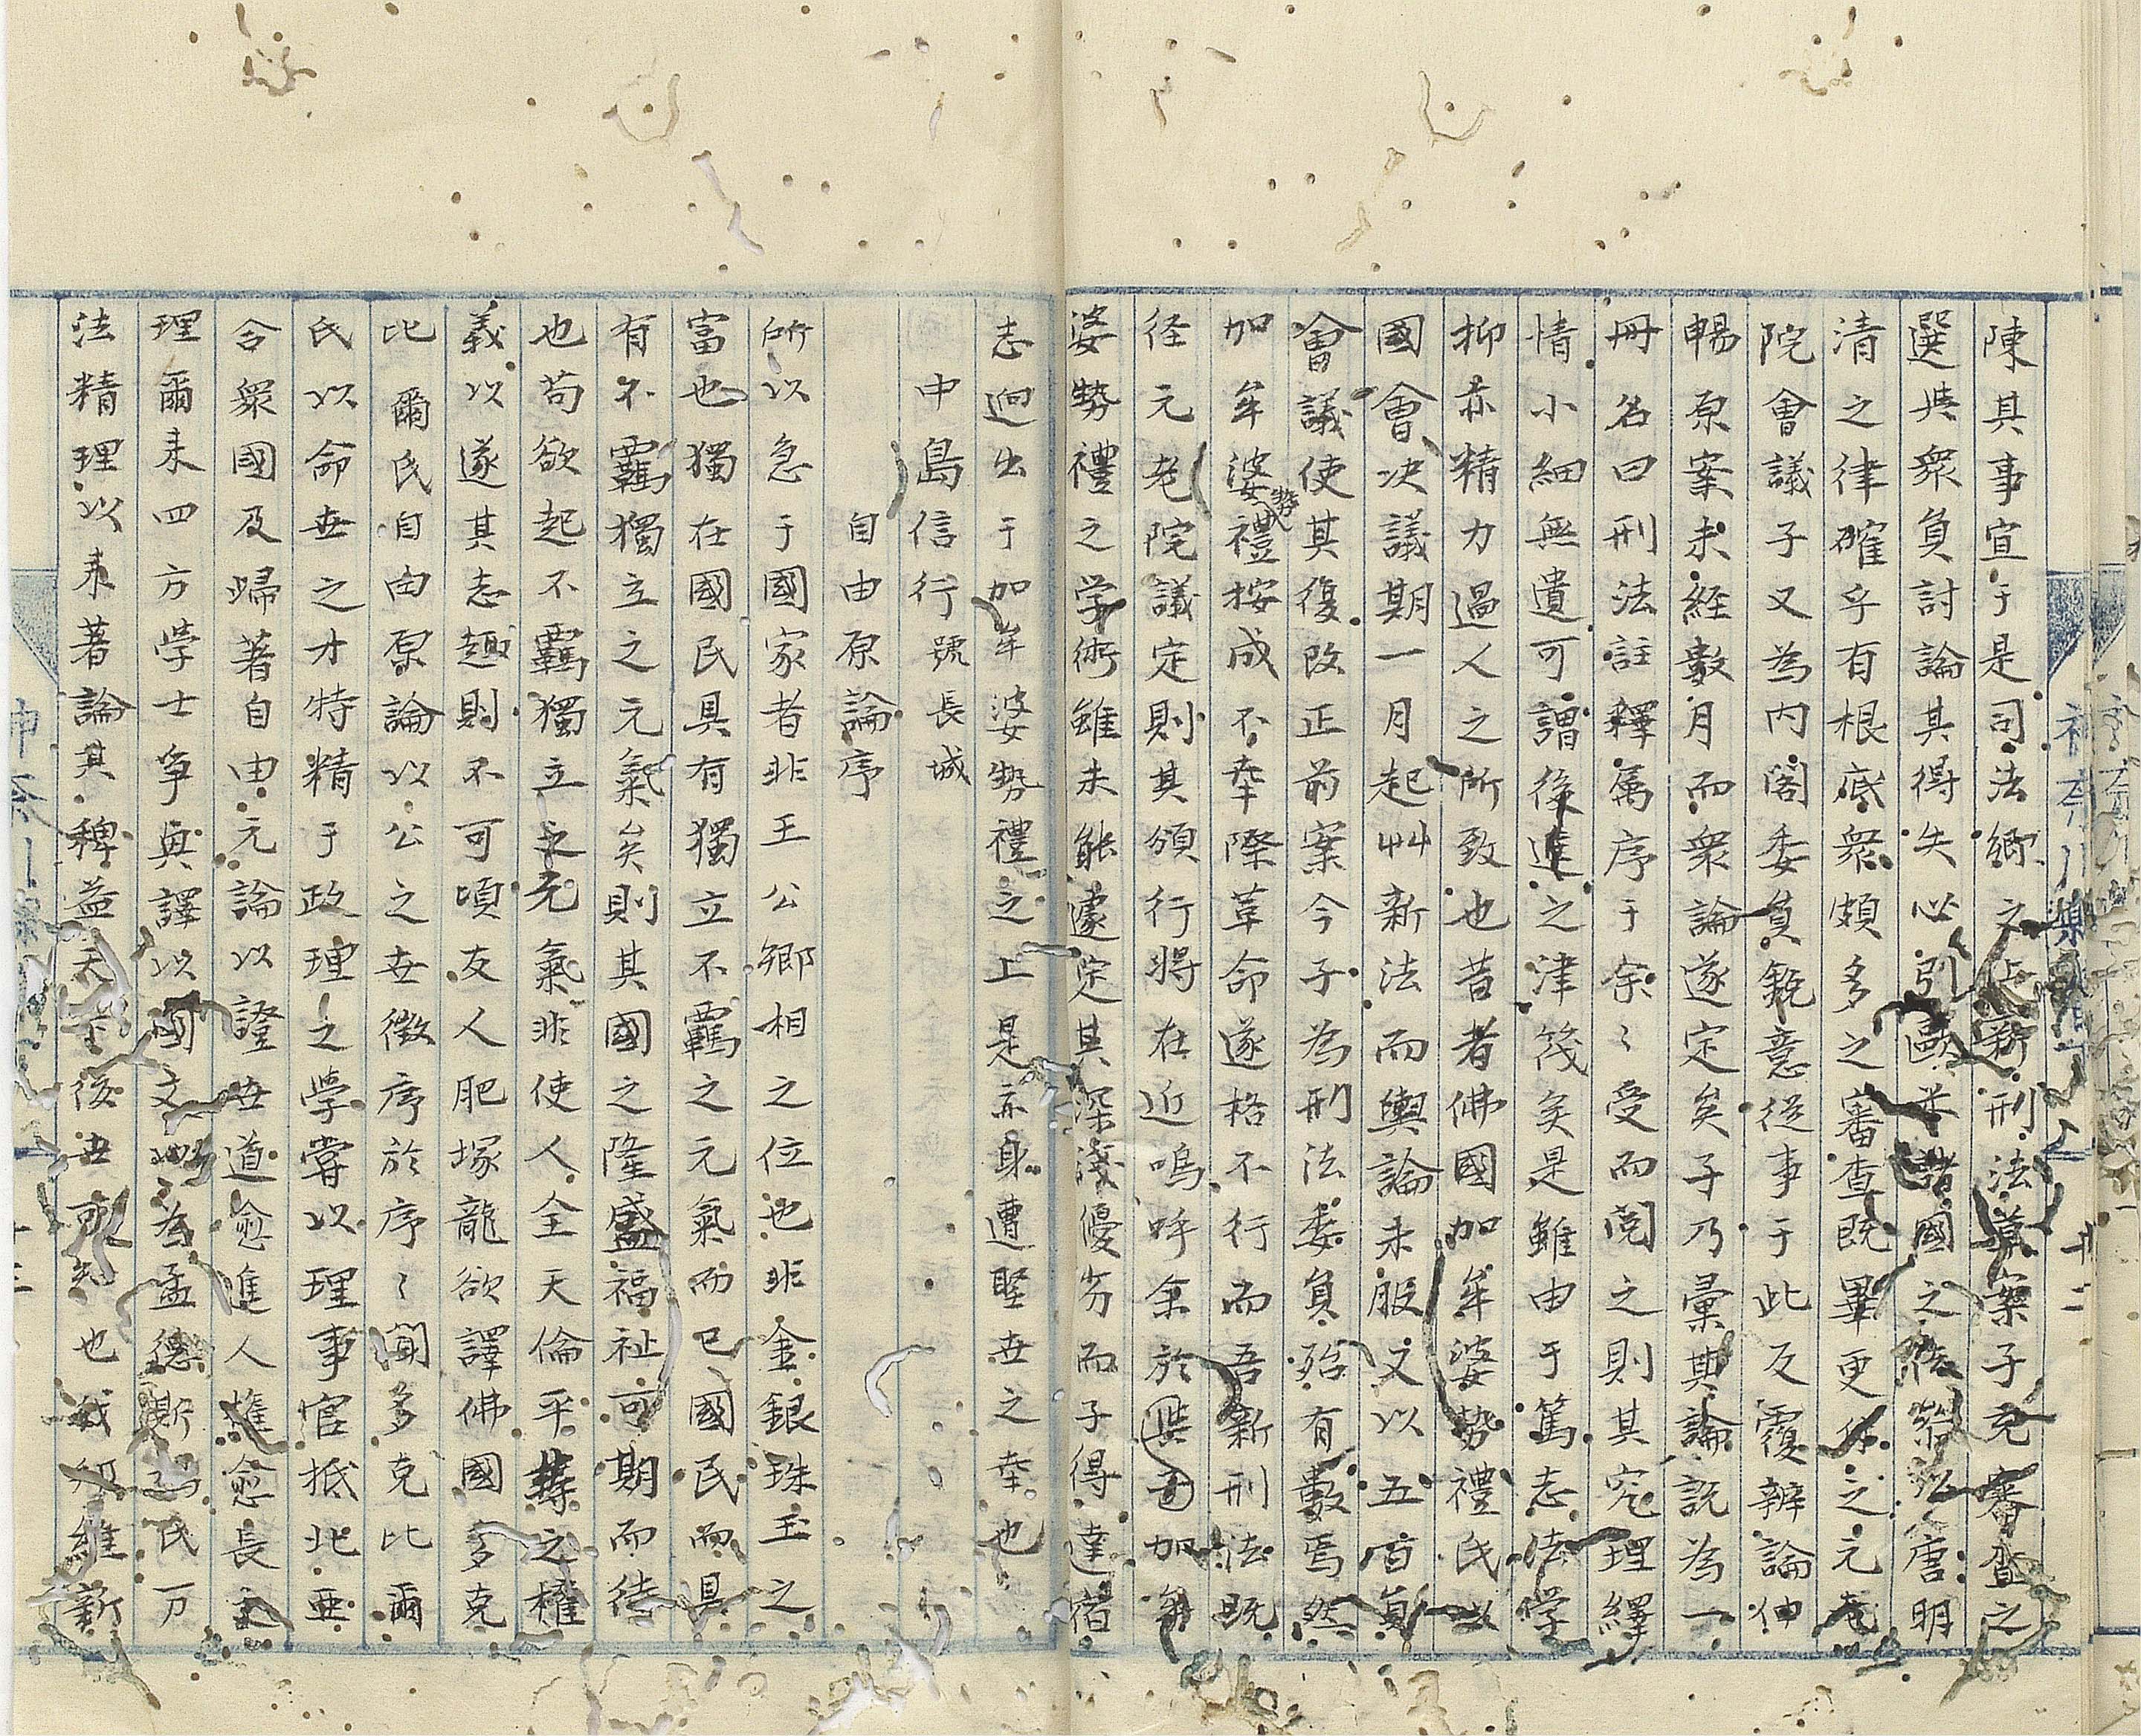 陳其事宣于是司法卿文上新刑法草案子充審査之
選與衆負討論其得失必引歐米諸國之法律以唐明
清之律確乎有根底衆頗多之審査既畢更係之元老
院會議子又為内閣委負鋭意従事于此反覆辨論伸
暢原案未経數月而衆論遂定矣子乃彙其論説為一
冊名曰刑法註釋属序于余〻受而閲之則其究理繹
情小細無遺可謂後進之津筏矣是雖由于篤志法学
抑亦精力過人之所致也昔者佛國加牟婆勢禮氏以
國會决議期一月起艸新法而輿論未服又以五百負
會議使其復改正前案今子為刑法委負殆有數焉然
加牟婆勢禮按成不幸際革命遂格不行而吾新刑法既
径元老院議定則其頒行將在近嗚呼余於與加牟
婆勢禮之学術雖未能遽定其深淺優劣而子得達宿
志迥出于加牟婆勢禮之上是亦身遭聖世之幸也
中島信行號長城
自由原論序
所以急于國家者非王公卿相之位也非金銀珠玉之
富也獨在國民具有獨立不羈之元氣而已國民而具
有不羈獨立之元氣矣則其國之隆盛福祉可期而待
也苟欲起不羈獨立之元氣非使人全天倫平等之權
義以遂其志趣則不可頃友人肥塚龍欲譯佛國多克
比爾氏自由原論以公之世徴序於序〻聞多克比爾
氏以命世之才特精于政理之學嘗以理事官抵北亜
合衆國及歸著自由元論以證世道愈進人權愈長之
理爾来四方學士争與譯以國文以為孟德斯鳩氏万
法精理以来著論其稗益天下後世可知也我邦維新